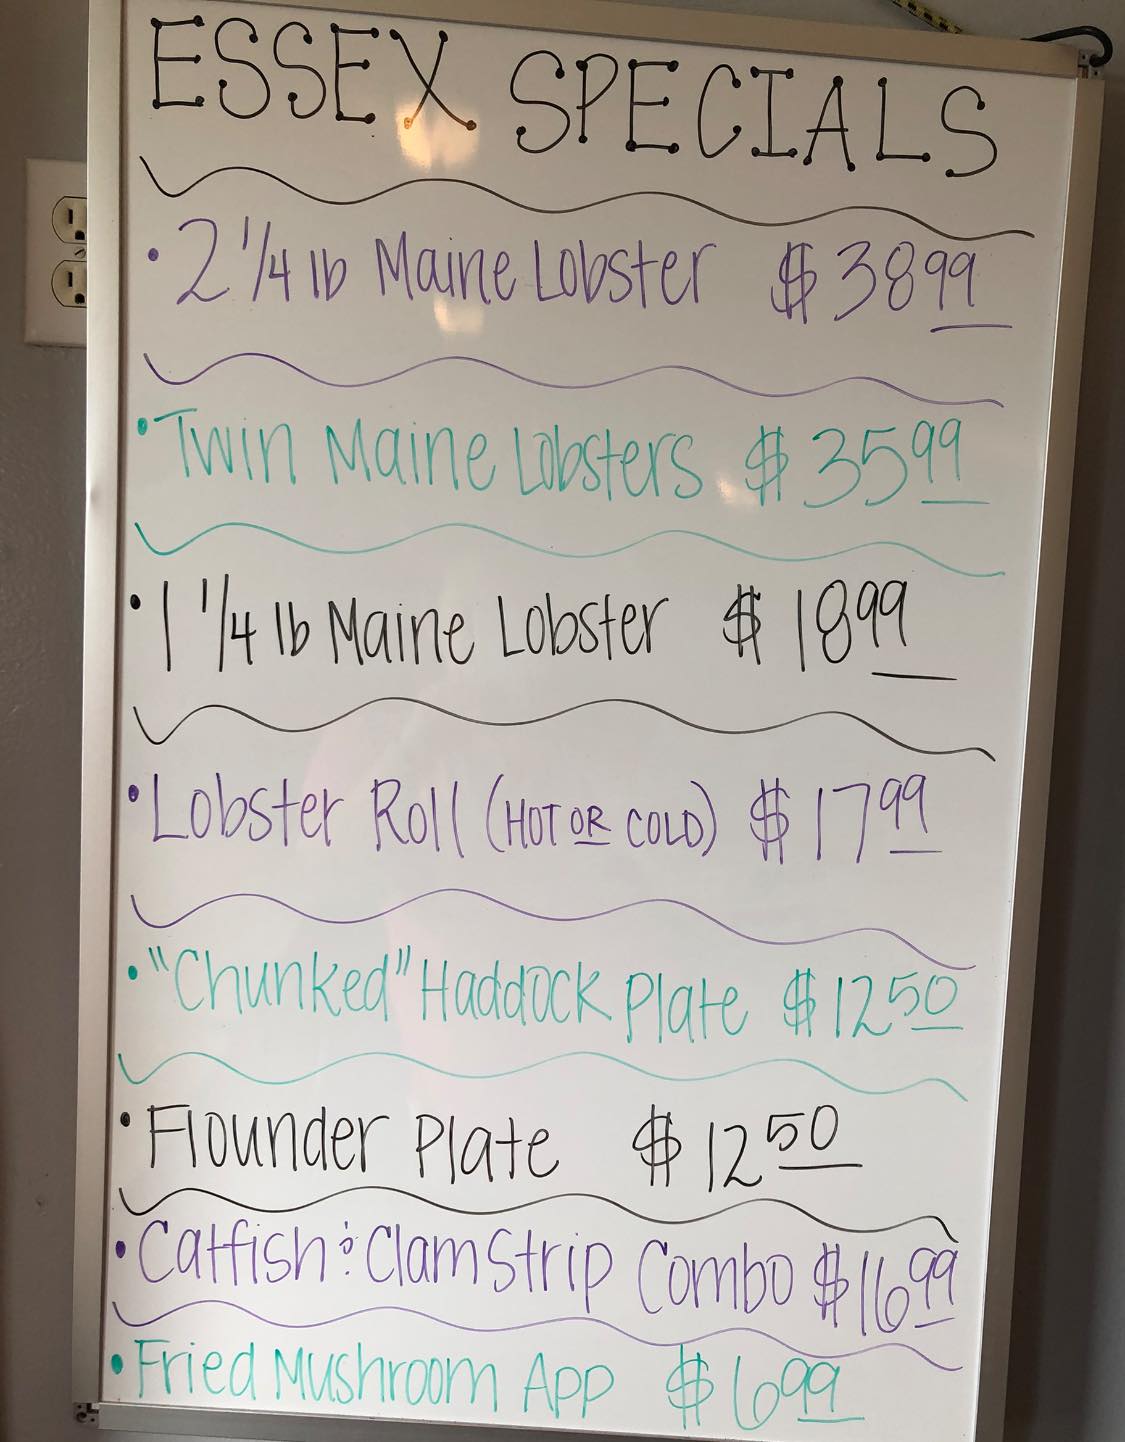 ESSEX SPECIALS
• 2 1/4 lb Maine Lobster $ 38 99
• Twin Maine Lobsters $ 35 99
• 1 1/4 lb Maine Lobster $ 18 99
• Lobster Roll (HOT OR COLD) $ 17 99
• "Chunked" Haddock Plate $ 12 50
• Flounder Plate $ 12 50
• Catfish & Clam Strip Combo $ 16 99
• Fried Mushroom App $ 6 99